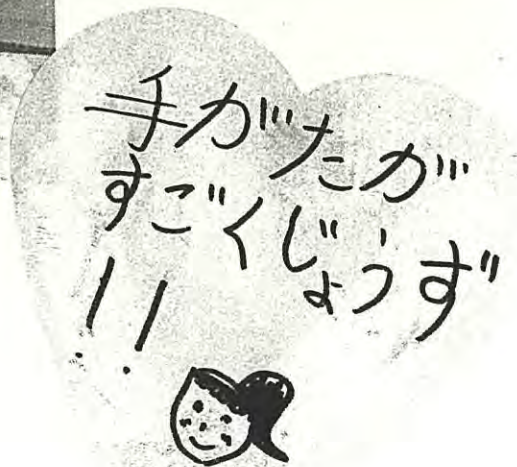 手がたが
すごくじょうず
!!